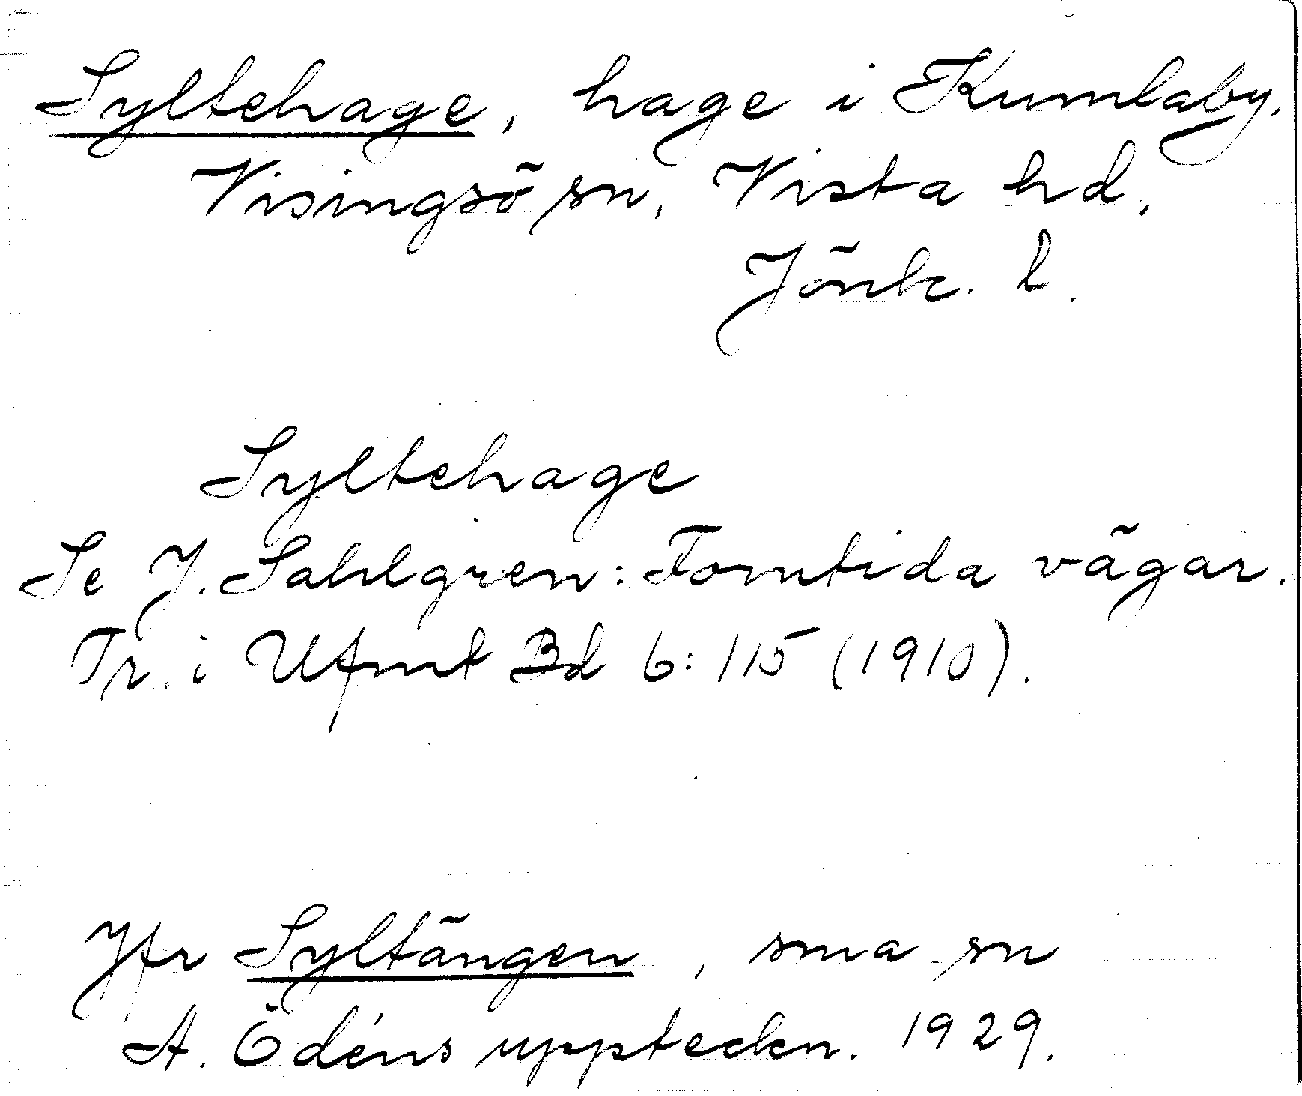 Syltehage, hage i Kumlaby.
Visingsö sn, Vista hd,
Jönk. l.
Syltehage
Se J. Sahlgren: Forntida vägar.
Tr. i Ufmt Bd 6:115 (1910).
Jfr Syltängen, sma sn
A. Ödéns uppteckn. 1929.